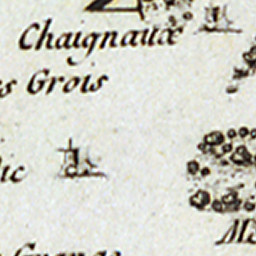 Chaignaux
s Grois
ic